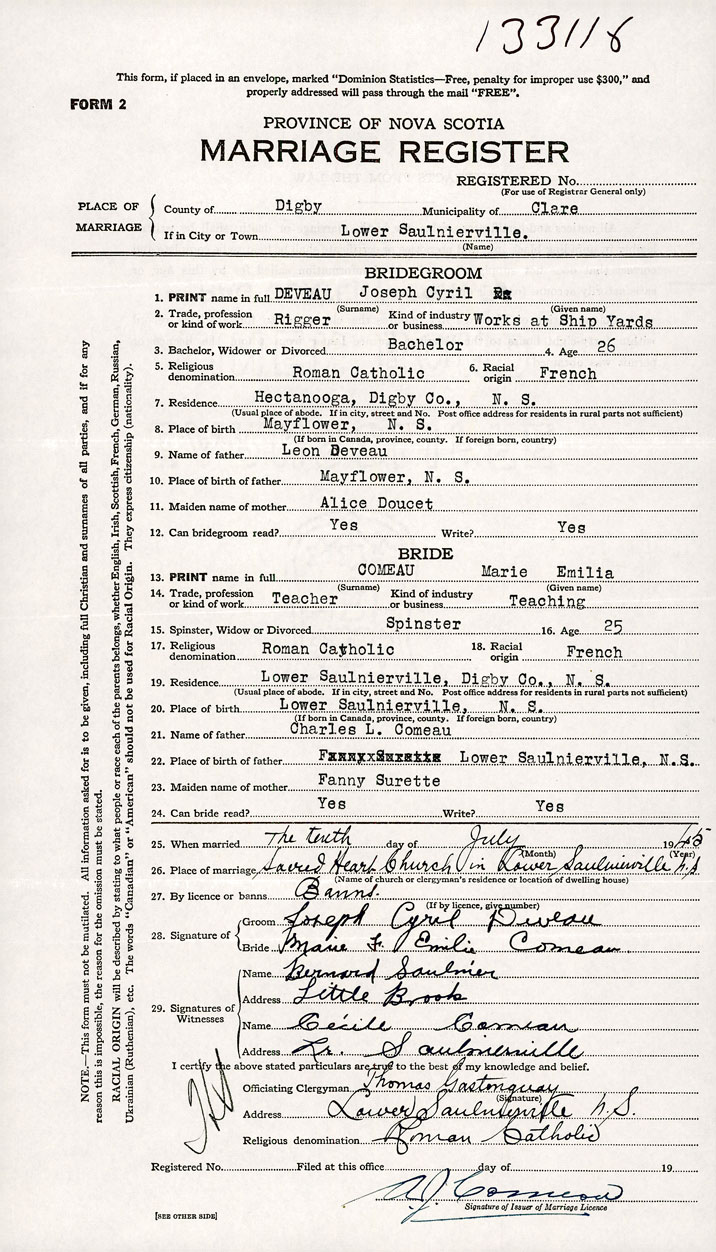 133118
This form, if placed in an envelope, marked "Dominion Statistics—Free, penalty for improper use $300," and
properly addressed will pass through the mail "FREE".
FORM 2
PROVINCE OF NOVA SCOTIA
MARRIAGE REGISTER
REGISTERED No.
(For use of Registrar General only)
PLACE OF MARRIAGE
County of Digby Municipality of Clare
If in City or Town Lower Saulnierville.
(Name)
BRIDEGROOM
1. PRINT name in full DEVEAU Joseph Cyril
(Surname) (Given name)
2. Trade, profession or kind of work Rigger Kind of industry or business Works at Ship Yards
3. Bachelor, Widower or Divorced Bachelor 4. Age 26
5. Religious denomination Roman Catholic 6. Racial origin French
7. Residence Hectanooga, Digby Co., N. S.
(Usual place of abode. If in city, street and No. Post office address for residents in rural parts not sufficient)
8. Place of birth Mayflower, N. S.
(If born in Canada, province, county. If foreign born, country)
9. Name of father Leon Deveau
10. Place of birth of father Mayflower, N. S.
11. Maiden name of mother Alice Doucet
12. Can bridegroom read? Yes Write? Yes
BRIDE
13. PRINT name in full COMEAU Marie Emilia
(Surname) (Given name)
14. Trade, profession or kind of work Teacher Kind of industry or business Teaching
15. Spinster, Widow or Divorced Spinster 16. Age 25
17. Religious denomination Roman Catholic 18. Racial origin French
19. Residence Lower Saulnierville, Digby Co., N. S.
(Usual place of abode. If in city, street and No. Post office address for residents in rural parts not sufficient)
20. Place of birth Lower Saulnierville, N. S.
(If born in Canada, province, county. If foreign born, country)
21. Name of father Charles L. Comeau
22. Place of birth of father Lower Saulnierville, N.S.
23. Maiden name of mother Fanny Surette
24. Can bride read? Yes Write? Yes
25. When married The tenth day of July 1945
(Month) (Year)
26. Place of marriage Sacred Heart Church in Lower Saulnierville N.S
(Name of church or clergyman's residence or location of dwelling house)
27. By licence or banns Banns.
(If by licence, give number)
28. Signature of
Groom Joseph Cyril Deveau
Bride Marie F. Emilie Comeau
29. Signatures of Witnesses
Name Bernard Saulnier
Address Little Brook
Name Cécile Comeau
Address Lr. Saulnierville
I certify the above stated particulars are true to the best of my knowledge and belief.
Officiating Clergyman Thomas Gastonguay
(Signature)
Address Lower Saulnierville N.S.
Religious denomination Roman Catholic
Registered No. Filed at this office day of 19
A.J. Comeau
Signature of Issuer of Marriage Licence
[SEE OTHER SIDE]
NOTE.—This form must not be mutilated. All information asked for is to be given, including full Christian and surnames of all parties, and if for any
reason this is impossible, the reason for the omission must be stated.
RACIAL ORIGIN will be described by stating to what people or race each of the parents belongs, whether English, Irish, Scottish, French, German, Russian,
Ukrainian (Ruthenian), etc. The words "Canadian" or "American" should not be used for Racial Origin. They express citizenship (nationality).